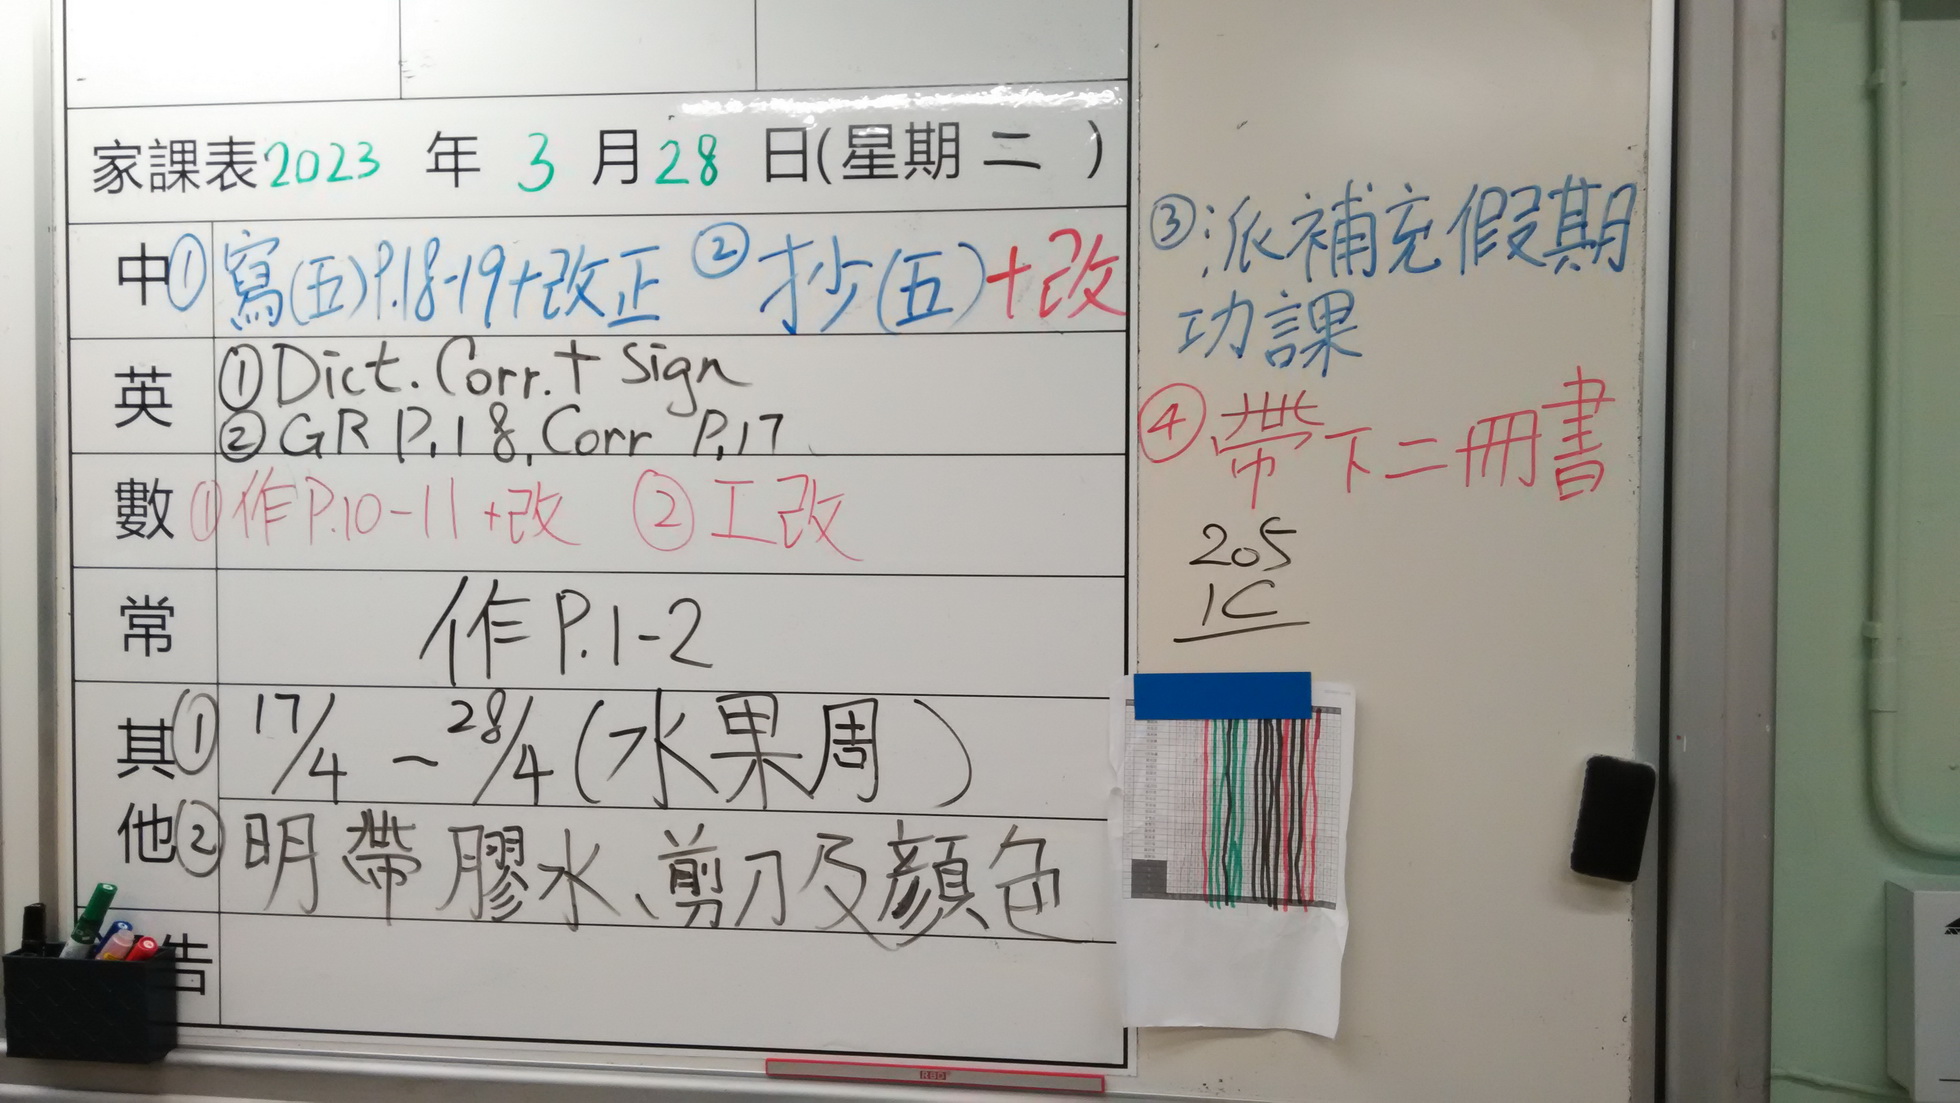 家課表2023 年 3 月 28 日(星期 二 )
中① 寫(五)P.18-19+改正 ② 抄(五)+改
英 ①Dict. Corr. + sign
②GR P.18, Corr P.17
數① 作P.10-11+改 ②工改
常 作P.1-2
其① 17/4 ~ 28/4 (水果周)
他② 明帶膠水、剪刀及顏色
告
③派補充假期
功課
④帶下二冊書
205
1C
RBD